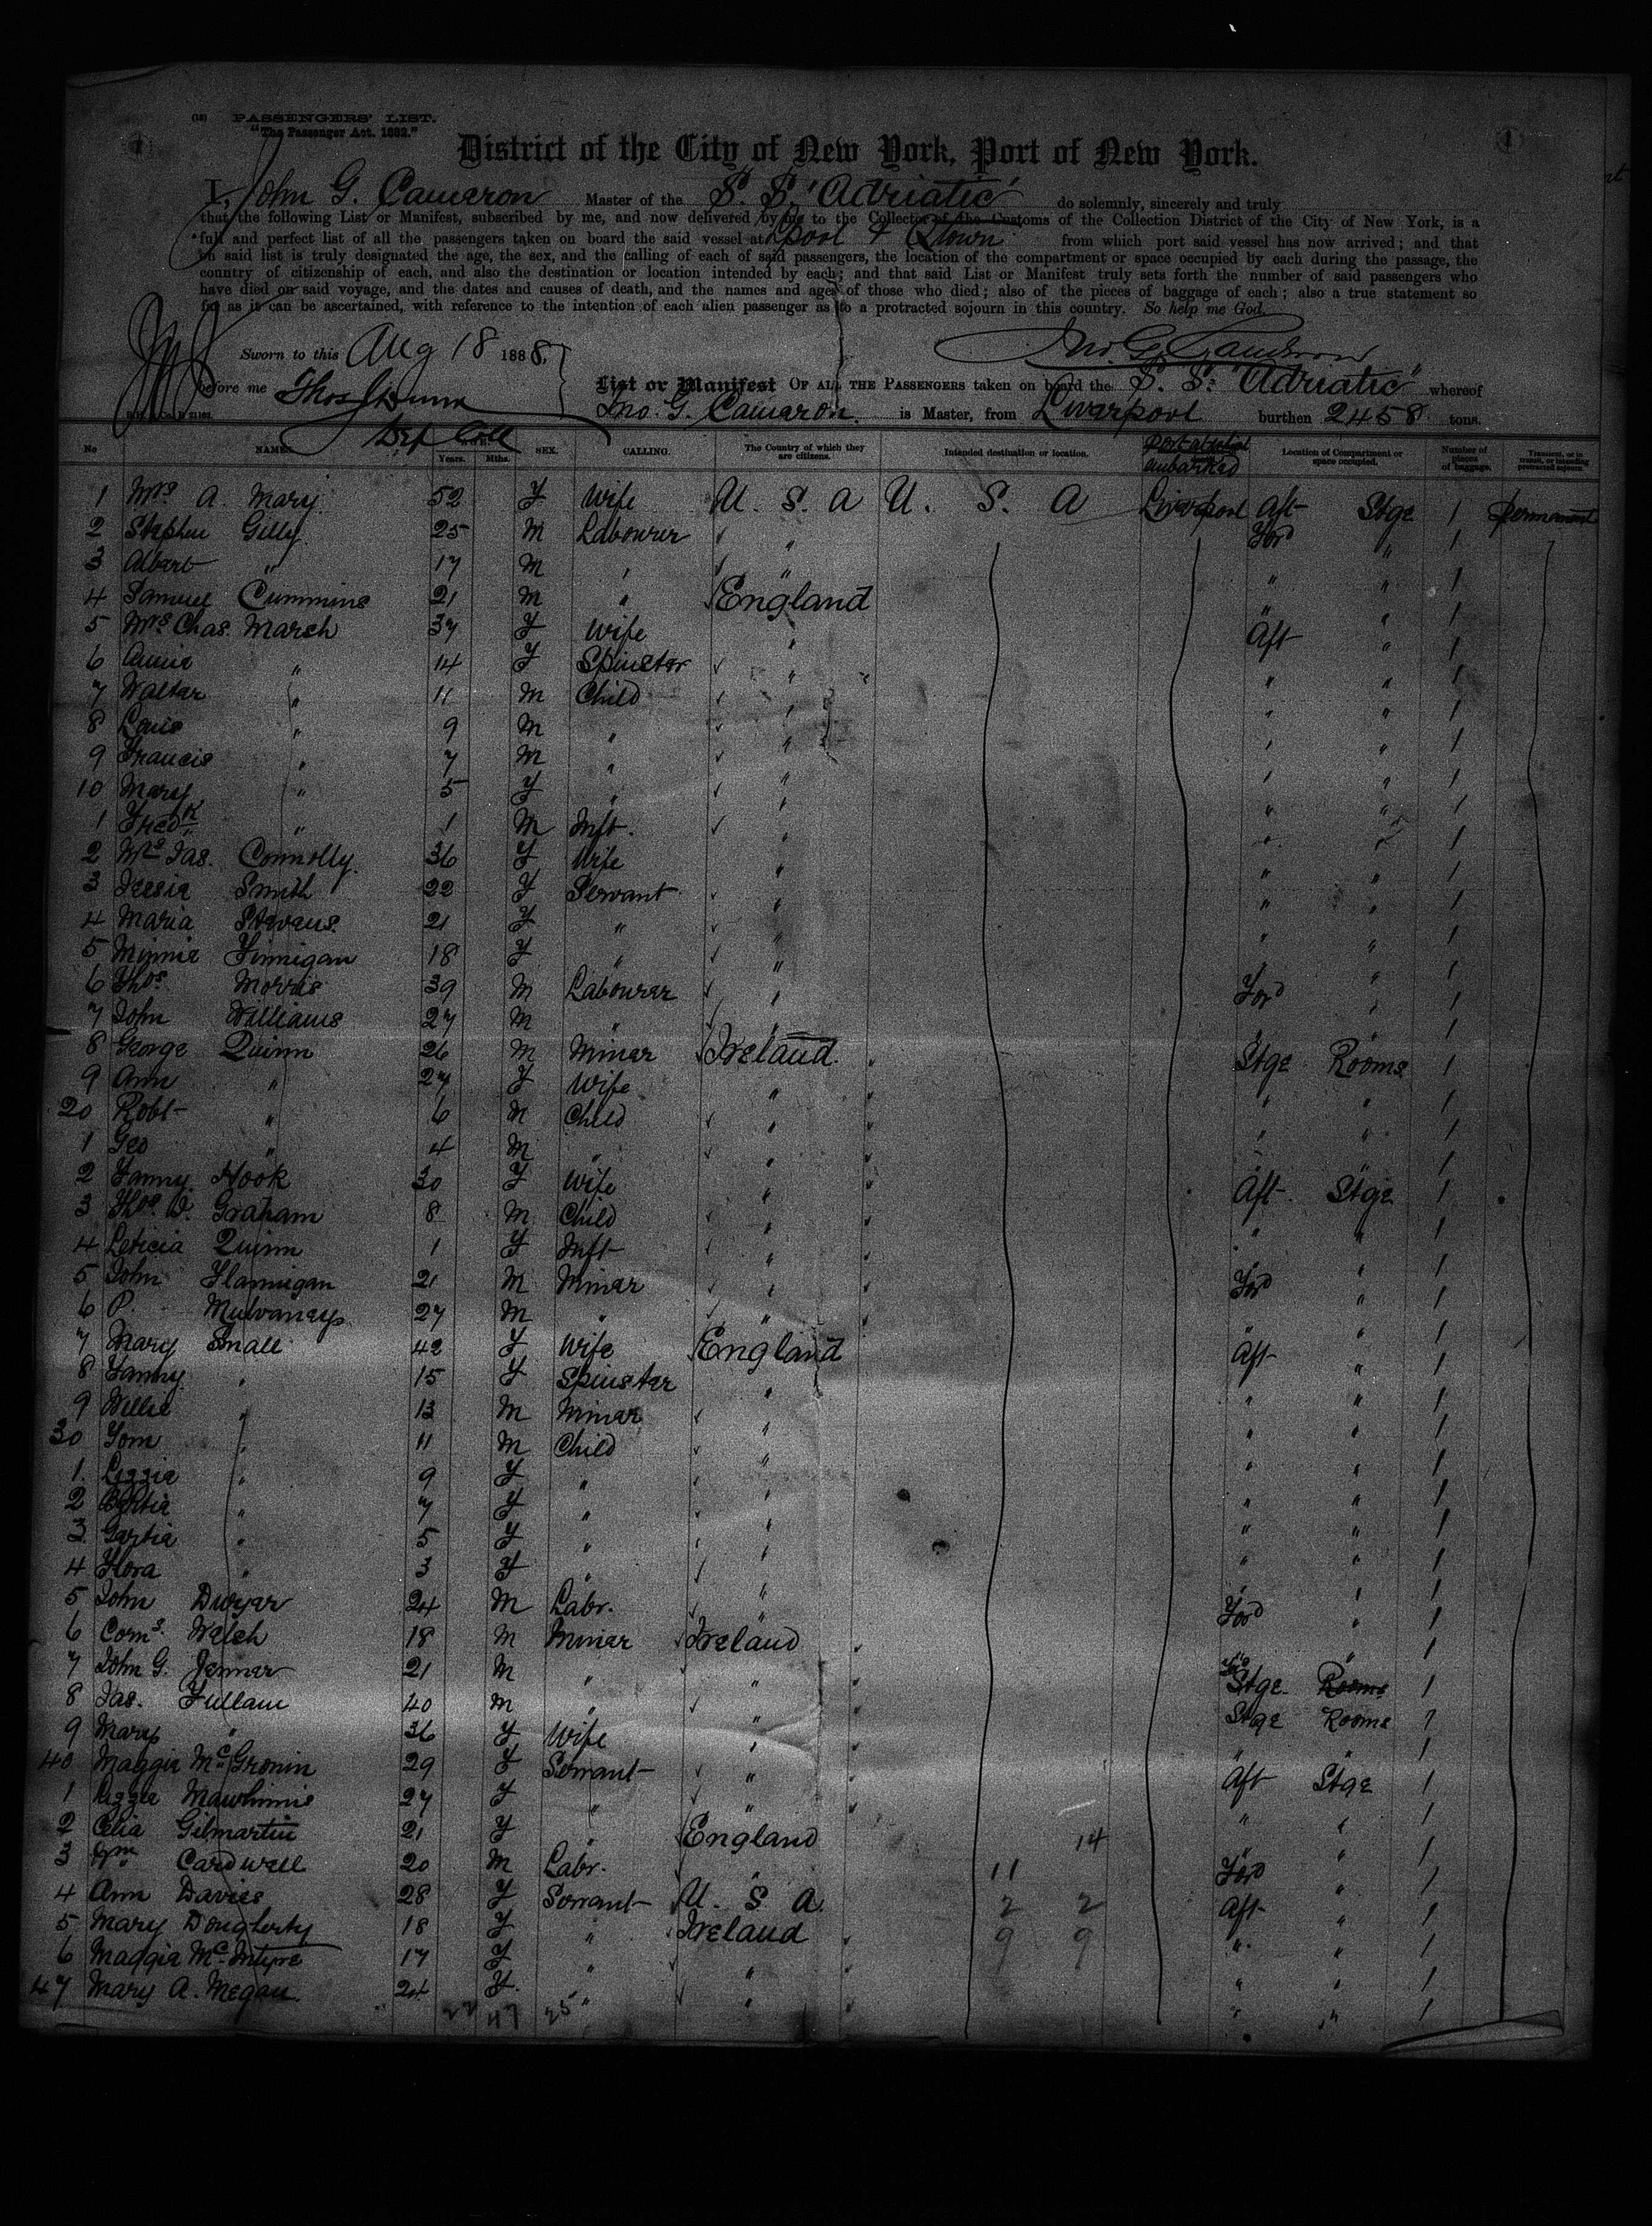 (18) PASSENGERS' LIST.
"The Passenger Act. 1882."
1 1
District of the City of New York, Port of New York.
I, John G. Cameron Master of the S. S. 'Adriatic' do solemnly, sincerely and truly
that the following List or Manifest, subscribed by me, and now delivered by me to the Collector of the Customs of the Collection District of the City of New York, is a
full and perfect list of all the passengers taken on board the said vessel at Lpool & Qtown from which port said vessel has now arrived; and that
on said list is truly designated the age, the sex, and the calling of each of said passengers, the location of the compartment or space occupied by each during the passage, the
country of citizenship of each, and also the destination or location intended by each; and that said List or Manifest truly sets forth the number of said passengers who
have died on said voyage, and the dates and causes of death, and the names and ages of those who died; also of the pieces of baggage of each; also a true statement so
far as it can be ascertained, with reference to the intention of each alien passenger as to a protracted sojourn in this country. So help me God.
Jno. G. Cameron
Sworn to this Aug 18 1888,
before me Thos Dunn
Dep Coll
List or Manifest OF ALL THE PASSENGERS taken on board the S. S. "Adriatic" whereof
Jno. G. Cameron is Master, from Liverpool burthen 2458 tons.
No NAMES. Years. Mths. SEX. CALLING. The Country of which they are citizens. Intended destination or location. Port at which embarked Location of Compartment or space occupied. Number of pieces of baggage. Transient, or in transit, or intending protracted sojourn.
1 Mrs A. Mary 52 F Wife U. S. A U. S. A Liverpool Aft Stge 1 Permanent
2 Stephen Gilly 25 M Labourer " Ford " 1
3 Albert " 17 M " " " " 1
4 Samuel Cummins 21 M " England " " 1
5 Mrs Chas. March 37 F Wife " Aft " 1
6 Annie " 14 F Spinster " " " 1
7 Walter " 11 M Child " " " 1
8 Louis " 9 M " " " " 1
9 Francis " 7 M " " " " 1
10 Mary " 5 F " " " " 1
1 Fredk " 1 M Inft. " " " 1
2 Mrs Jas. Connolly 36 F Wife " " " 1
3 Jessie Smith 22 F Servant " " " 1
4 Maria Stevens 21 F " " " " 1
5 Minnie Finnigan 18 F " " " " 1
6 Thos Morris 39 M Labourer " Ford " 1
7 John Williams 27 M " " " 1
8 George Quinn 26 M Miner Ireland Stge Rooms 1
9 Ann " 27 F Wife " " " 1
20 Robt " 6 M Child " " " 1
1 Geo " 4 M " " 1
2 Fanny Hook 30 F Wife " Aft Stge 1
3 Thos. Graham 8 M Child " " " 1
4 Leticia Quinn 1 F Inft " " " 1
5 John Flannigan 21 M Miner " Ford " 1
6 P. Mulvaney 27 M " " " " 1
7 Mary Small 42 F Wife England Aft " 1
8 Fanny " 15 F Spinster " " " 1
9 Willie " 13 M Miner " " " 1
30 Tom " 11 M Child " " " 1
1 Lizzie " 9 F " " " " 1
2 Bertie " 7 F " " " " 1
3 Gertie " 5 F " " " " 1
4 Flora " 3 F " " " " 1
5 John Dwyer 24 M Labr. " Ford " 1
6 Corns. Welsh 18 M Miner Ireland " 1
7 John G. Jenner 21 M " " Stge Rooms 1
8 Jas. Fullam 40 M " " Stge Rooms 1
9 Mary " 36 F Wife " " " 1
40 Maggie McGronin 29 F Servant " Aft Stge 1
1 Lizzie Mawhinnie 27 F " " " " 1
2 Celia Gilmartin 21 F " England 14 " " 1
3 Wm Cardwell 20 M Labr. " 11 Ford " 1
4 Ann Davies 28 F Servant U. S A. 2 2 Aft " 1
5 Mary Dougherty 18 F " Ireland 9 9 " " 1
6 Maggie McIntyre 17 F " " " " 1
47 Mary A. Megan 24 F " " " " 1
22 47 25